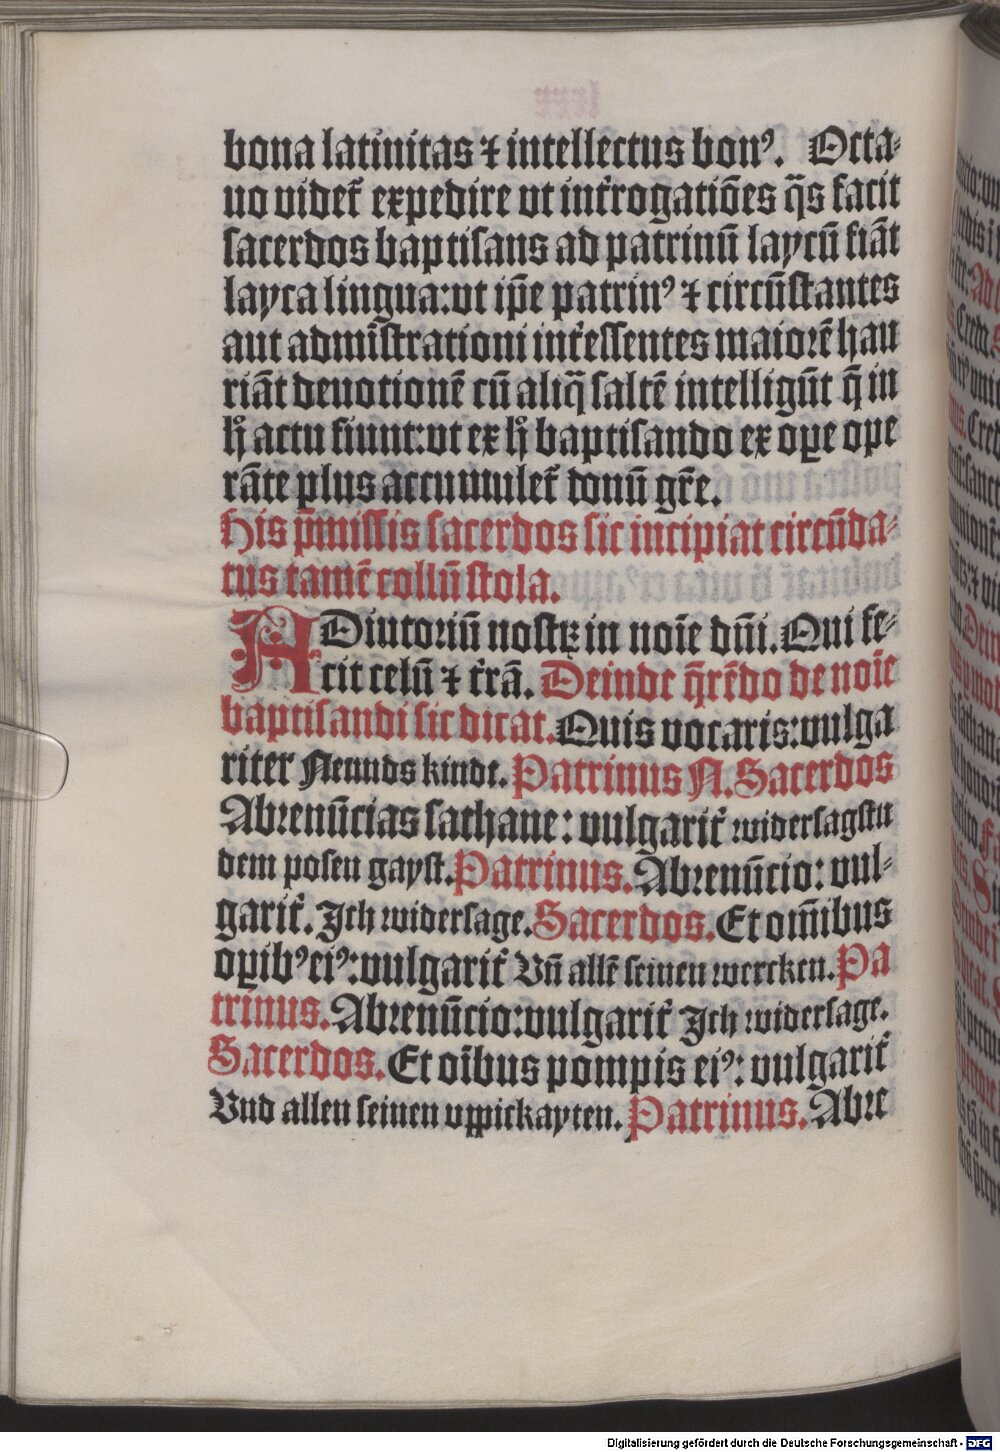 bona latinitas ⁊ intellectus bonꝰ. Octa-
uo uidet̃ expedire ut int̃rogatiões q̃s facit
sacerdos baptisans ad patrinũ laycũ fiãt
layca lingua: ut ip̃e patrinꝰ ⁊ circũstantes
aut admĩstrationi int̃essentes maiorẽ hau
riãt deuotionẽ cũ aliq̃ saltẽ intelligũt q̃ in
h̊ actu fiunt: ut ex h̊ baptisando ex oꝑe ope
rãte plus accumulet̃ donũ gr̃e.
His p̃missis sacerdos sic incipiat circũda-
tus tamẽ collũ stola.
ADiutoriũ nostꝝ in noĩe dñi. Qui fe-
cit celũ ⁊ t̃rã. Deinde q̃rẽdo de noĩe
baptisandi sic dicat. Quis uocaris: uulga
riter Nennds kindt. Patrinus N. Sacerdos
Abrenũcias sathane: uulgarit̃ widersagstu
dem posen gayst. Patrinus. Abrenũcio: uul-
garit̃. Ich widersage. Sacerdos. Et om̃ibus
oꝑibꝰ eiꝰ: uulgarit̃ Vñ allẽ seinen wercken. Pa
trinus. Abrenũcio: uulgarit̃ Ich widersage.
Sacerdos. Et oĩbus pompis eiꝰ: uulgarit̃
Vnd allen seinen uppickayten. Patrinus. Abre
Digitalisierung gefördert durch die Deutsche Forschungsgemeinschaft - DFG